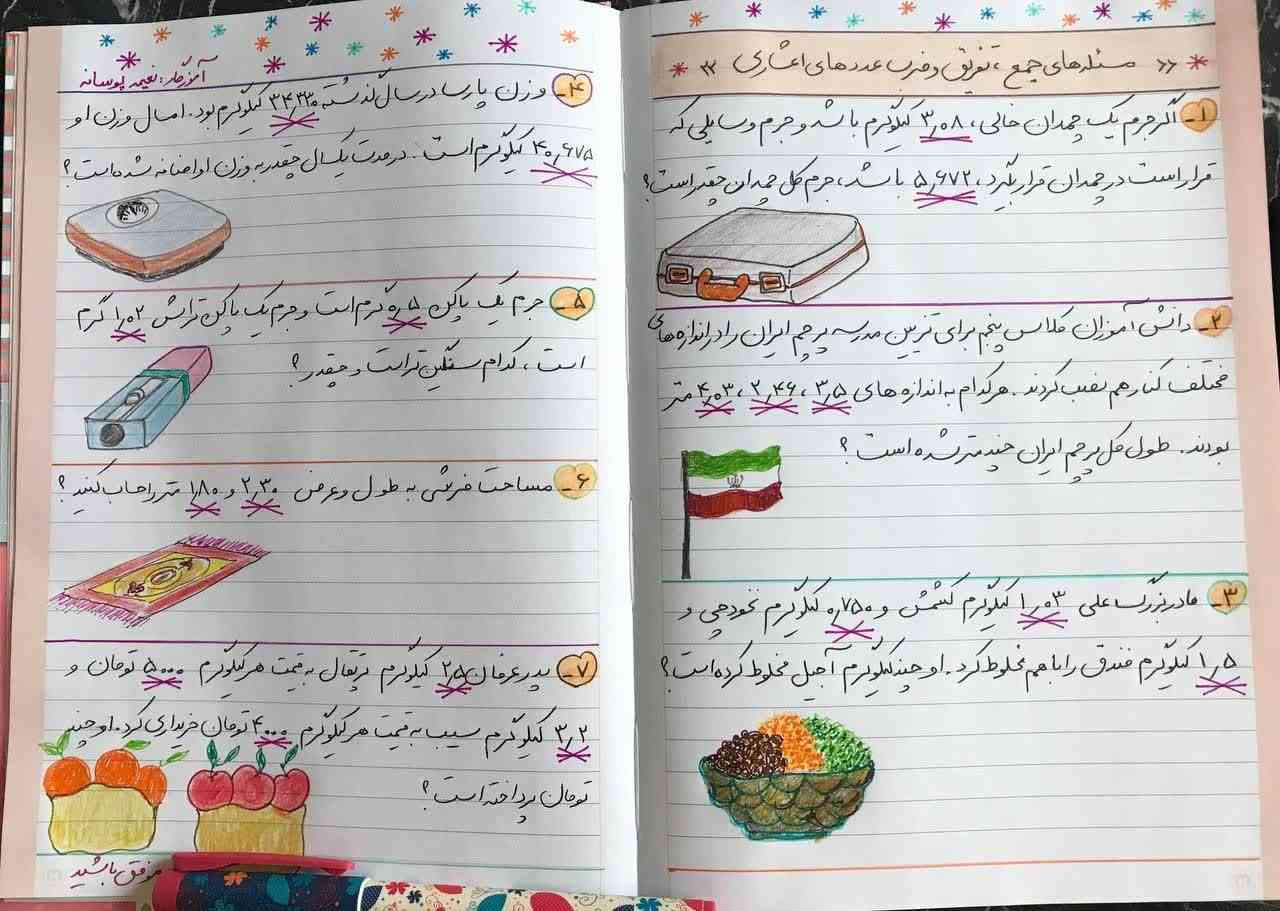 «مسئله های جمع، تفریق و ضرب عددهای اعشاری»
۱- اگر جرم یک چمدان خالی، ۳٫۰۸ کیلوگرم باشد و جرم وسایلی که
قرار است در چمدان قرار بگیرد، ۵٫۶۷۲ باشد، جرم کل چمدان چقدر است؟
۲- دانش آموزان کلاس پنجم برای تزیین مدرسه پرچم ایران را در اندازه های
مختلف کنار هم نصب کردند. هر کدام به اندازه های ۳٫۵، ۲٫۴۶، ۴٫۰۳ متر
بودند. طول کل پرچم ایران چند متر شده است؟
۳- مادربزرگ علی ۱٫۰۳ کیلوگرم کشمش و ۰٫۷۵۰ کیلوگرم نخودچی و
۱٫۵ کیلوگرم فندق را با هم مخلوط کرد. او چند کیلوگرم آجیل مخلوط کرده است؟
آموزگار: نعیمه پوسانه
۴- وزن پارسا در سال گذشته ۳۴٫۲۳۰ کیلوگرم بود. امسال وزن او
۴۰٫۶۷۵ کیلوگرم است. در مدت یکسال چقدر به وزن او اضافه شده است؟
۵- جرم یک پاکن ۰٫۵ گرم است و جرم یک پاکن تراش ۱٫۰۲ گرم
است، کدام سنگین تر است و چقدر؟
۶- مساحت فرشی به طول و عرض ۲٫۳۰ و ۱٫۸۰ متر را حساب کنید؟
۷- پدر عرفان ۲٫۵ کیلوگرم پرتقال به قیمت هر کیلوگرم ۵۰۰۰ تومان و
۳٫۲ کیلوگرم سیب به قیمت هر کیلوگرم ۴۰۰۰ تومان خریداری کرد. او چند
تومان پرداخته است؟
موفق باشید